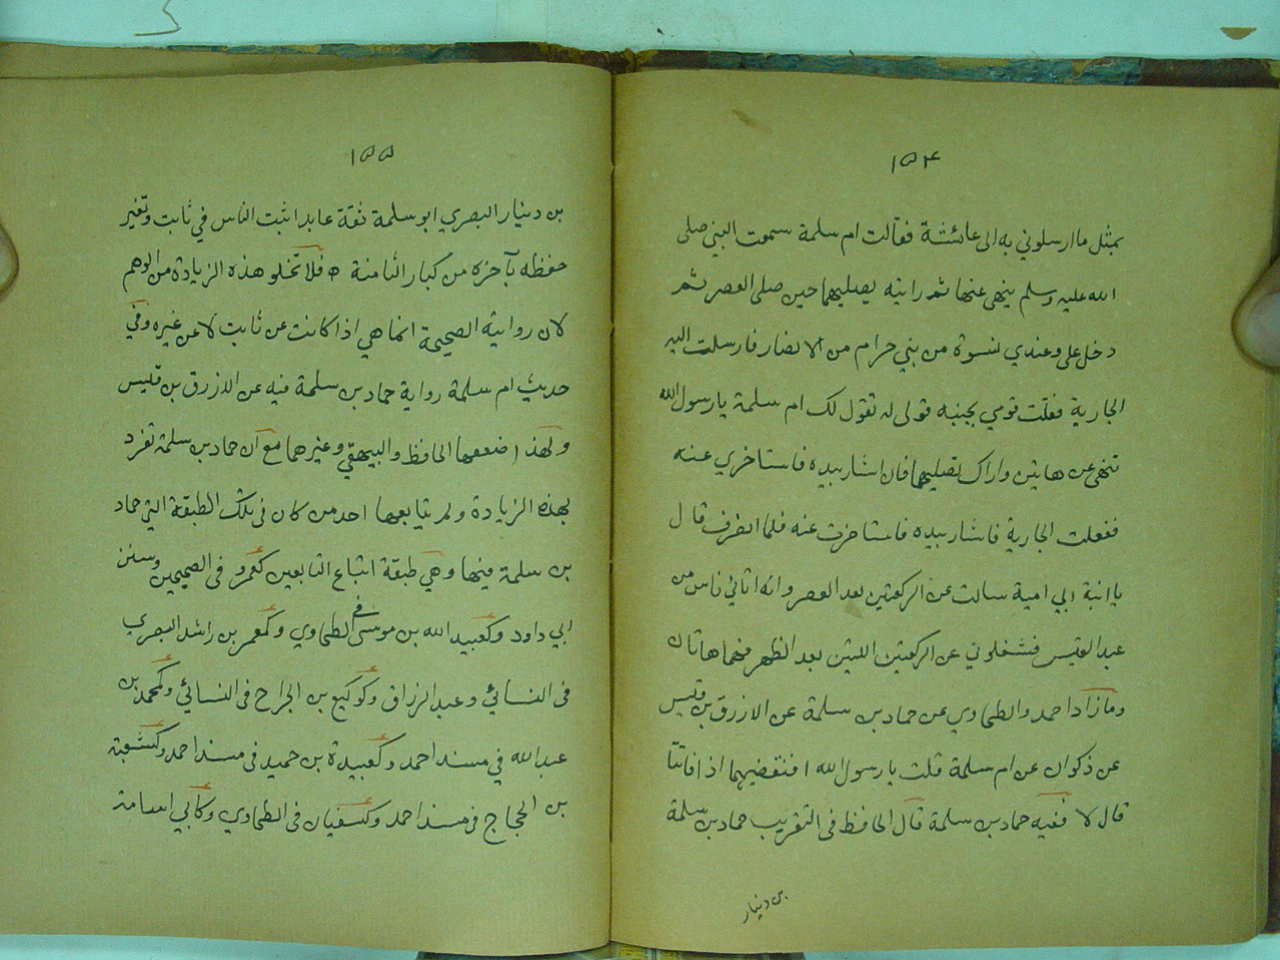 ١٥٤
بمثل ما ارسلوني به الى عائشة فقالت ام سلمة سمعت النبي صلى
الله عليه وسلم ينهى عنها ثم رايته يصليهما حين صلى العصر ثم
دخل علي وعندي نسوة من بني حرام من الانصار فارسلت اليه
الجارية فقلت قومي بجنبه قولي له تقول لك ام سلمة يا رسول الله
تنهى عن هاتين واراك تصليهما فان اشار بيده فاستاخري عنه
ففعلت الجارية فاشار بيده فاستاخرت عنه فلما انصرف قال
يا ابنة ابي امية سالت عن الركعتين بعد العصر وانه اتاني ناس من
عبد القيس فشغلوني عن الركعتين اللتين بعد الظهر فهما هاتان
وما زاد احمد والطحاوي عن حماد بن سلمة عن الازرق بن قيس
عن ذكوان عن ام سلمة قلت يا رسول الله افنقضيهما اذا فاتتا
قال لا ففيه حماد بن سلمة قال الحافظ في التقريب حماد بن سلمة
بن دينار
١٥٥
بن دينار البصري ابو سلمة ثقة عابد اثبت الناس في ثابت وتغير
حفظه بآخره من كبار الثامنة ه فلا تخلو هذه الزيادة من الوهم
لان روايته الصحيحة انما هي اذا كانت عن ثابت لا عن غيره وفي
حديث ام سلمة رواية حماد بن سلمة فيه عن الازرق بن قيس
ولهذا ضعفها الحافظ والبيهقي وغيرهما مع ان حماد بن سلمة تفرد
بهذه الزيادة ولم يتابعها احد من كان في تلك الطبقة التي حماد
بن سلمة فيها وهي طبقة اتباع التابعين كعمرو في الصحيحين وسنن
ابي داود وكعبيد الله بن موسى في الطحاوي وكمعمر بن راشد البصري
في النسائي وعبد الرزاق وكوكيع بن الجراح في النسائي وكمحمد بن
عبد الله في مسند احمد وكعبيدة بن حميد في مسند احمد وكشعبة
بن الحجاج في مسند احمد وكسفيان في الطحاوي وكابي اسامة